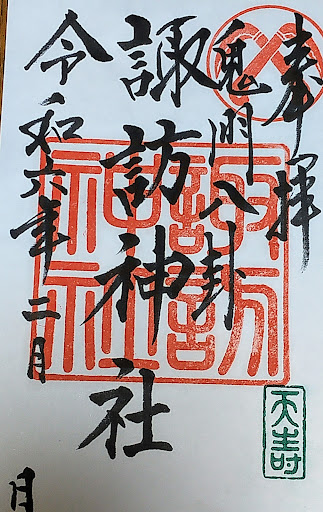 奉拝
鬼門八卦
諏訪神社
令和六年二月
月
諏訪
神社
天寿